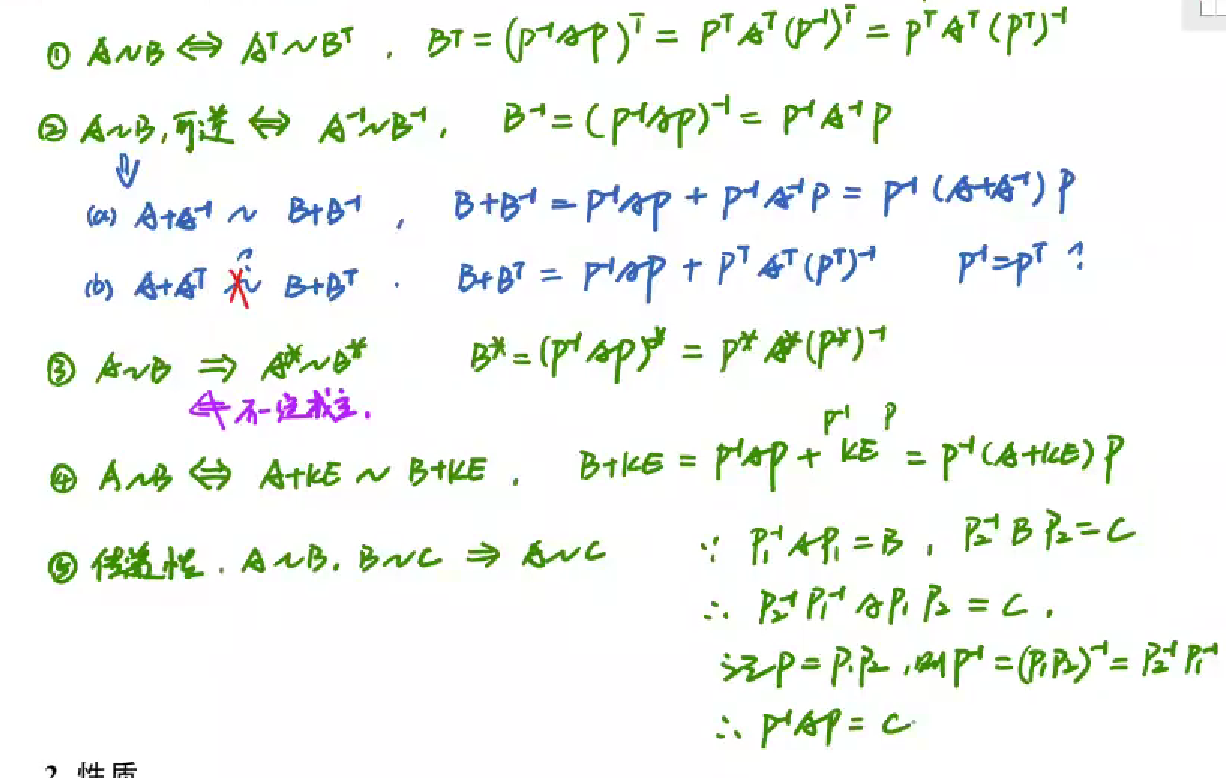 ① A∼B ⇔ Aᵀ∼Bᵀ . Bᵀ = (P⁻¹AP)ᵀ = PᵀAᵀ(P⁻¹)ᵀ = PᵀAᵀ(Pᵀ)⁻¹
② A∼B,可逆 ⇔ A⁻¹∼B⁻¹. B⁻¹ = (P⁻¹AP)⁻¹ = P⁻¹A⁻¹P
⇓
(a) A+A⁻¹ ∼ B+B⁻¹ , B+B⁻¹ = P⁻¹AP + P⁻¹A⁻¹P = P⁻¹(A+A⁻¹)P
(b) A+Aᵀ ≁ B+Bᵀ . B+Bᵀ = P⁻¹AP + PᵀAᵀ(Pᵀ)⁻¹ P⁻¹=Pᵀ ?
③ A∼B ⇒ A*∼B* B* = (P⁻¹AP)* = P*A*(P*)⁻¹
⇐ 不一定成立.
P⁻¹ P
④ A∼B ⇔ A+kE ∼ B+kE . B+kE = P⁻¹AP + kE = P⁻¹(A+kE)P
⑤ 传递性. A∼B. B∼C ⇒ A∼C ∵ P₁⁻¹AP₁ = B , P₂⁻¹BP₂ = C
∴ P₂⁻¹P₁⁻¹AP₁P₂ = C .
记P = P₁P₂ ,则P⁻¹ = (P₁P₂)⁻¹ = P₂⁻¹P₁⁻¹
∴ P⁻¹AP = C
2 性质